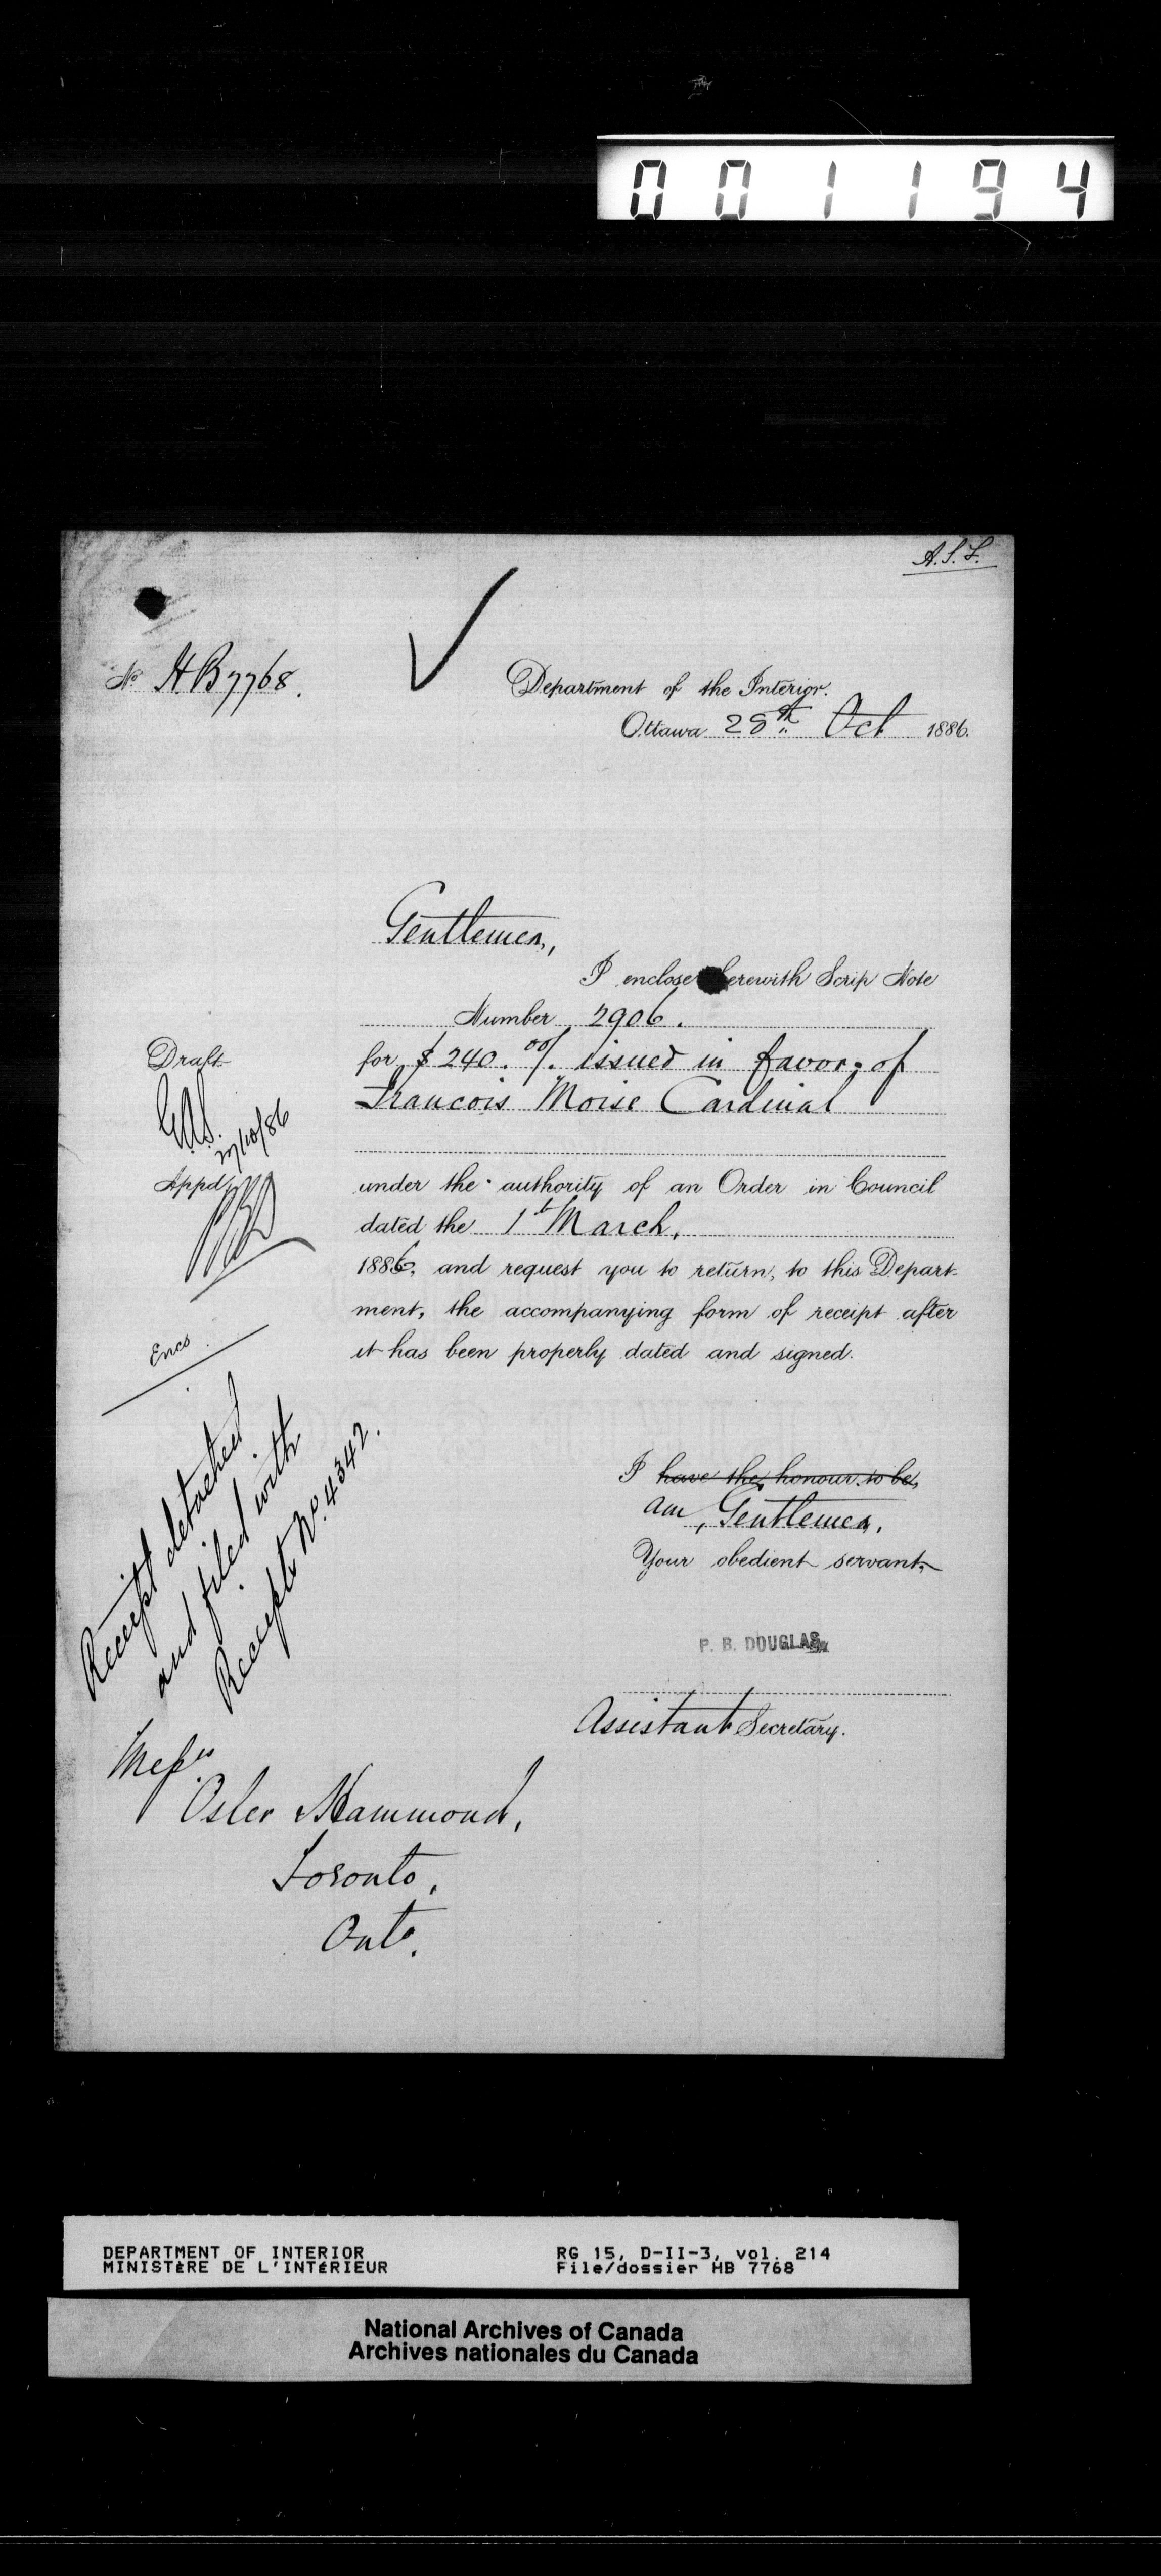 001194
A.S.L.
No H.B 7768.
Department of the Interior.
Ottawa 28th Oct 1886.
Gentlemen,
I enclose herewith Scrip Note
Number 2906.
for $240.00/. issued in favor, of
Francois Moise Cardinal
under the authority of an Order in Council
dated the 1st March,
1886, and request you to return, to this Depart-
ment, the accompanying form of receipt after
it has been properly dated and signed.
Draft
27/10/86
Appd
Encs.
Receipt detached
and filed with
Receipt No. 4342.
I have the honour to be,
am, Gentlemen,
Your obedient servant,
P. B. DOUGLAS,
Assistant Secretary.
Messrs
Osler & Hammond,
Toronto,
Onto.
DEPARTMENT OF INTERIOR
MINISTÈRE DE L'INTÉRIEUR
RG 15, D-II-3, vol. 214
File/dossier HB 7768
National Archives of Canada
Archives nationales du Canada